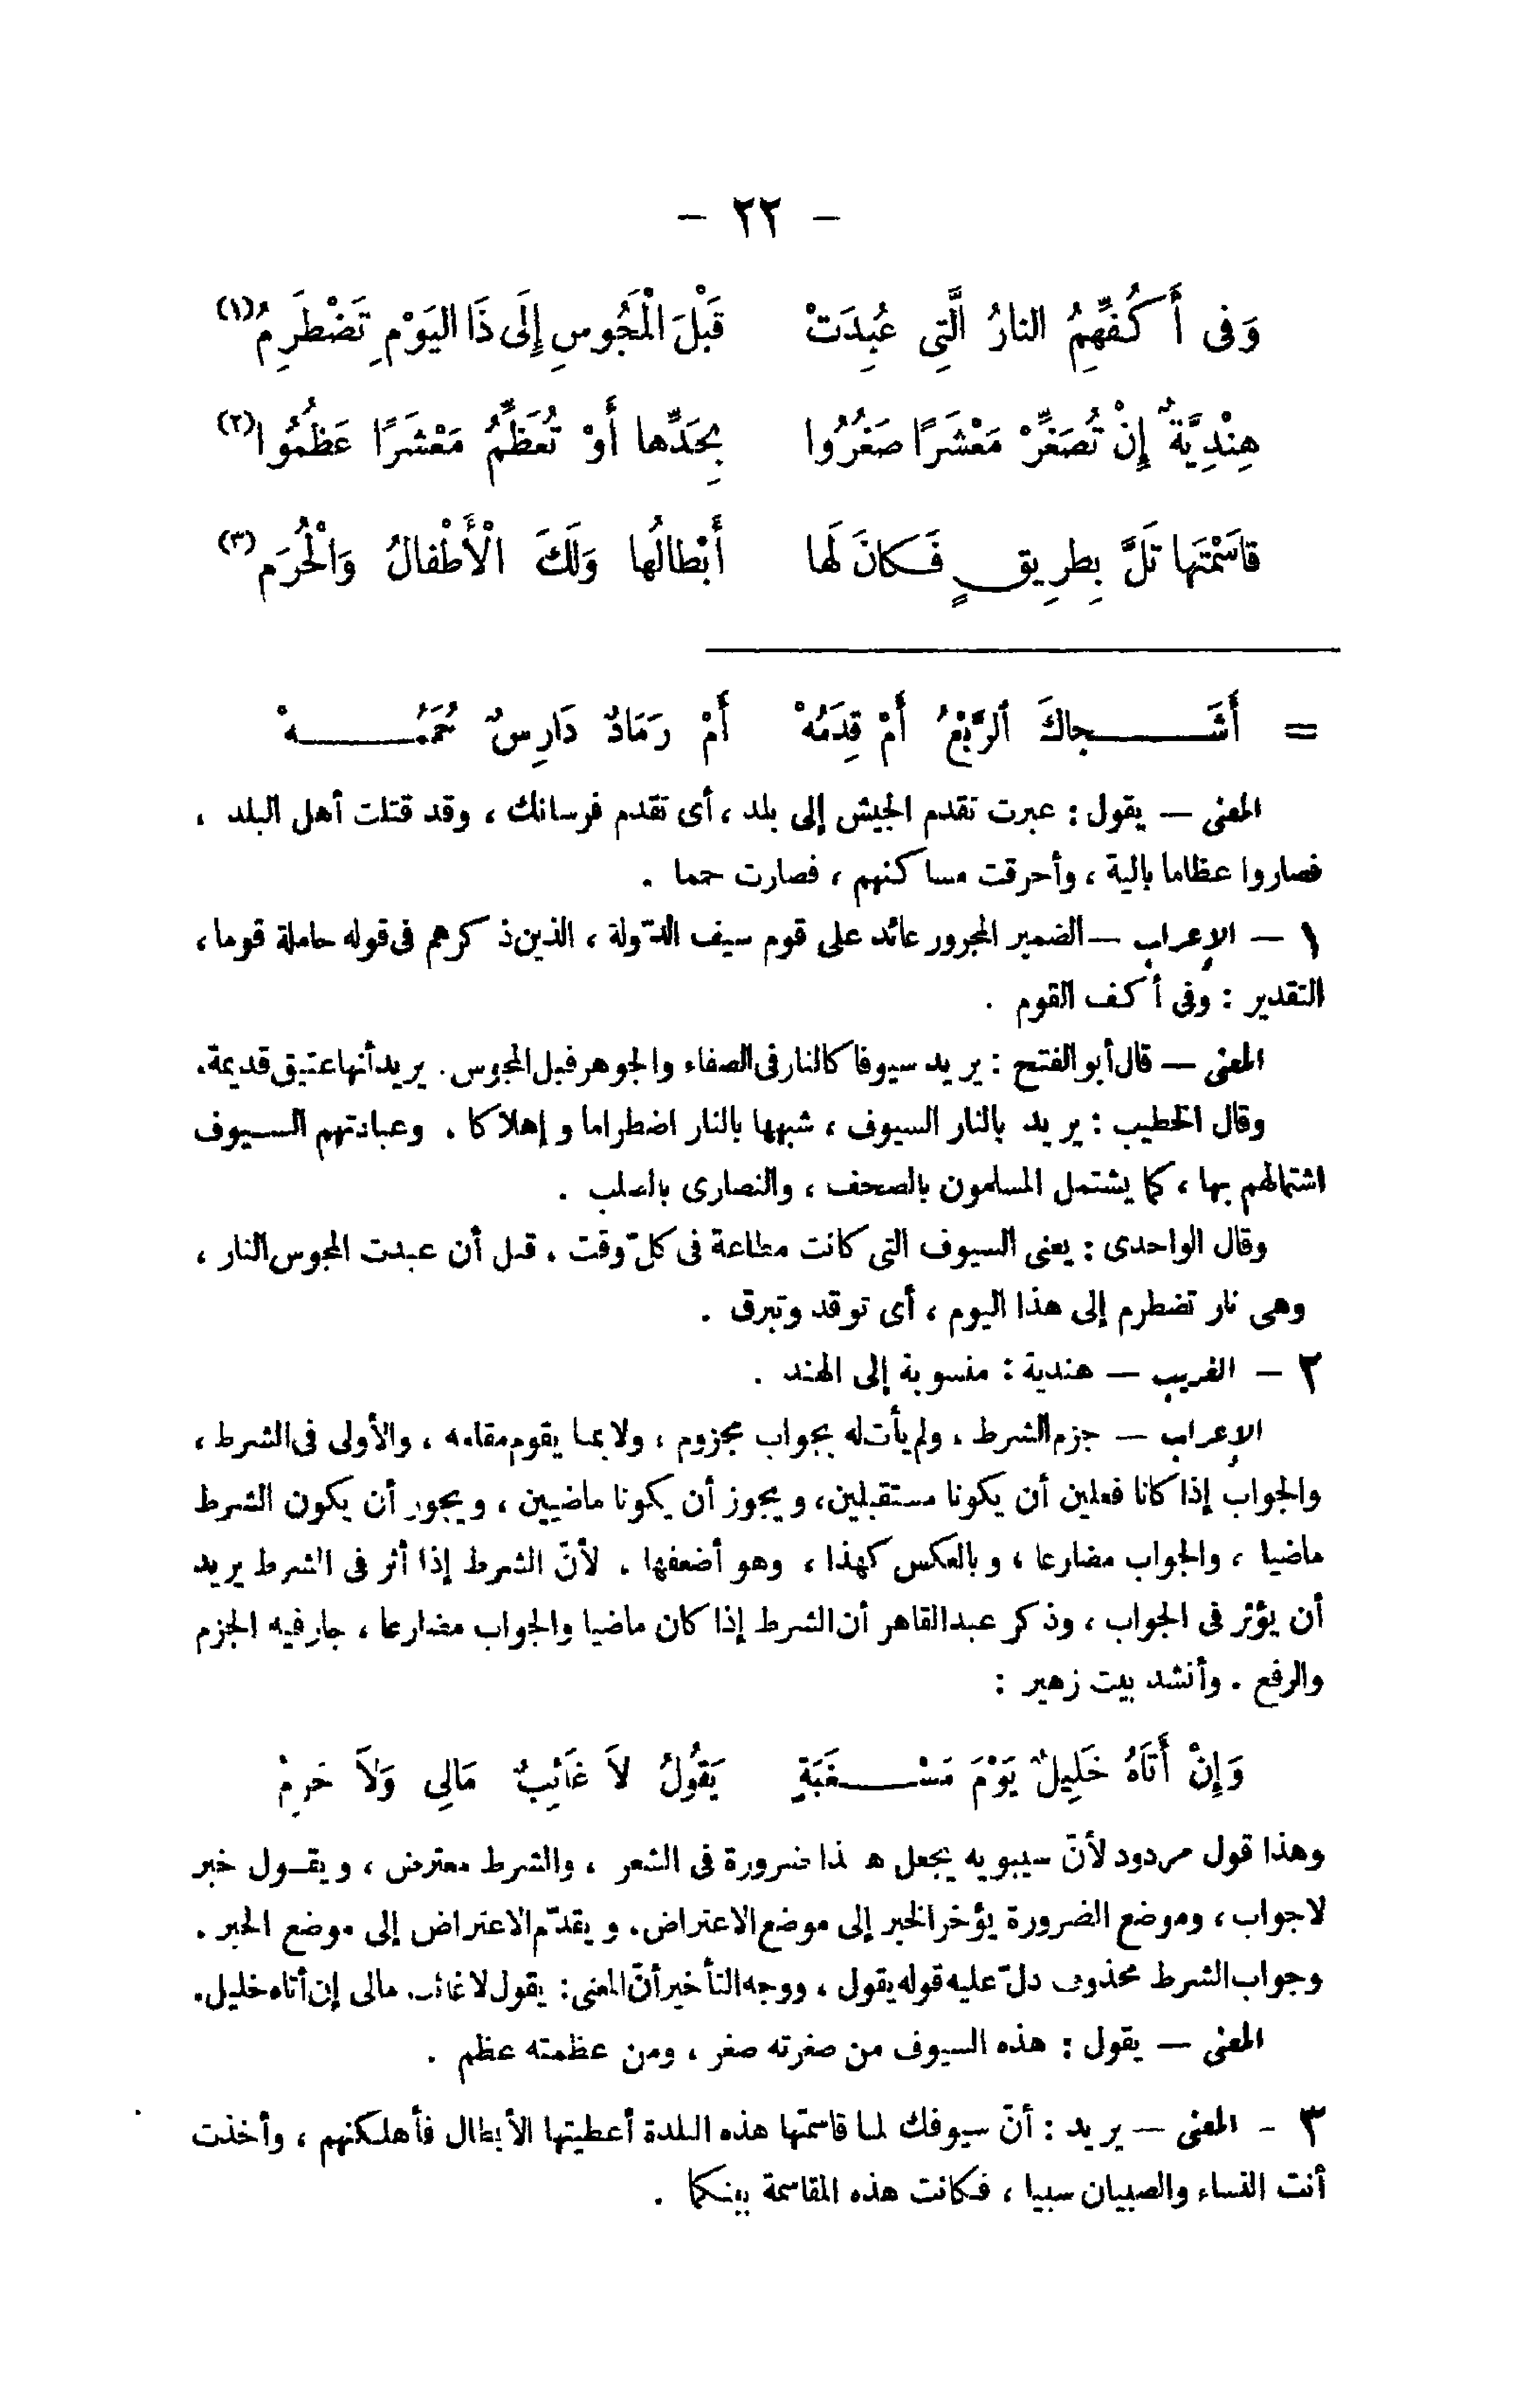 - ٢٢ -
وَفى أَكُفِّهِمُ النارُ الَّتِى عُبِدَتْ قَبْلَ الْمَجُوسِ إِلَى ذَا اليَوْمِ تَضْطَرِمُ (١)
هِنْدِيَّةٌ إِنْ تُصَغِّرْ مَعْشَرًا صَغُرُوا بِحَدِّها أَوْ تُعَظِّمْ مَعْشَرًا عَظُمُوا (٢)
قاسَمْتَها تَلَّ بِطرِيقٍ فَكانَ لَها أَبْطالُها وَلَكَ الْأَطْفالُ وَالْحُرَمُ (٣)
= أَشَـجاكَ ٱلرَّبْعُ أَمْ قِدَمُهْ أَمْ رَمَادٌ دَارِسٌ حُمَمُـهْ
المعنى — يقول : عبرت تقدم الجيش إلى بلد ، أى تقدم فرسانك ، وقد قتلت أهل البلد ،
فصاروا عظاما بالية ، وأحرقت مساكنهم ، فصارت حمما .
١ — الإعراب — الضمير المجرور عائد على قوم سيف الدّولة ، الذين ذكرهم فى قوله حاملة قوما ،
التقدير : وفى أكف القوم .
المعنى — قال أبو الفتح : يريد سيوفا كالنار فى الصفاء والجوهر قبل المجوس . يريد أنها عتيق قديمة .
وقال الخطيب : يريد بالنار السيوف ، شبهها بالنار اضطراما وإهلاكا . وعبادتهم السيوف
اشتمالهم بها ، كما يشتمل المسلمون بالصحف ، والنصارى بالصلب .
وقال الواحدى : يعنى السيوف التى كانت مطاعة فى كلّ وقت . قبل أن عبدت المجوس النار ،
وهى نار تضطرم إلى هذا اليوم ، أى توقد وتبرق .
٢ — الغريب — هندية : منسوبة إلى الهند .
الإعراب — جزم الشرط . ولم يأت له بجواب مجزوم ، ولا بما يقوم مقامه ، والأولى فى الشرط ،
والجواب إذا كانا فعلين أن يكونا مستقبلين ، ويجوز أن يكونا ماضيين ، ويجوز أن يكون الشرط
ماضيا ، والجواب مضارعا ، وبالعكس كهذا ، وهو أضعفها . لأنّ الشرط إذا أثر فى الشرط يريد
أن يؤثر فى الجواب ، وذكر عبد القاهر أن الشرط إذا كان ماضيا والجواب مضارعا ، جاز فيه الجزم
والرفع . وأنشد بيت زهير :
وَإِنْ أَتَاهُ خَلِيلٌ يَوْمَ مَسْـغَبَةٍ يَقُولُ لاَ غَائِبٌ مَالِى وَلاَ حَرِمُ
وهذا قول مردود لأنّ سيبويه يجعل هذا ضرورة فى الشعر ، والشرط معترض ، ويقـول خبر
لا جواب ، وموضع الضرورة يؤخر الخبر إلى موضع الاعتراض . ويقدّم الاعتراض إلى موضع الخبر .
وجواب الشرط محذوف دلّ عليه قوله يقول ، ووجه التأخير أنّ المعنى : يقول لا غائب مالى إن أتاه خليل .
المعنى — يقول : هذه السيوف من صغرته صغر ، ومن عظمته عظم .
٣ - المعنى — يريد : أنّ سيوفك لما قاسمتها هذه البلدة أعطيتها الأبطال فأهلكتهم ، وأخذت
أنت النساء والصبيان سبيا ، فكانت هذه المقاسمة بينكما .